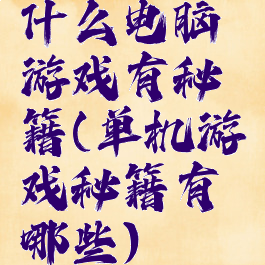 什么电脑
游戏有秘
籍(单机游
戏秘籍有
哪些)